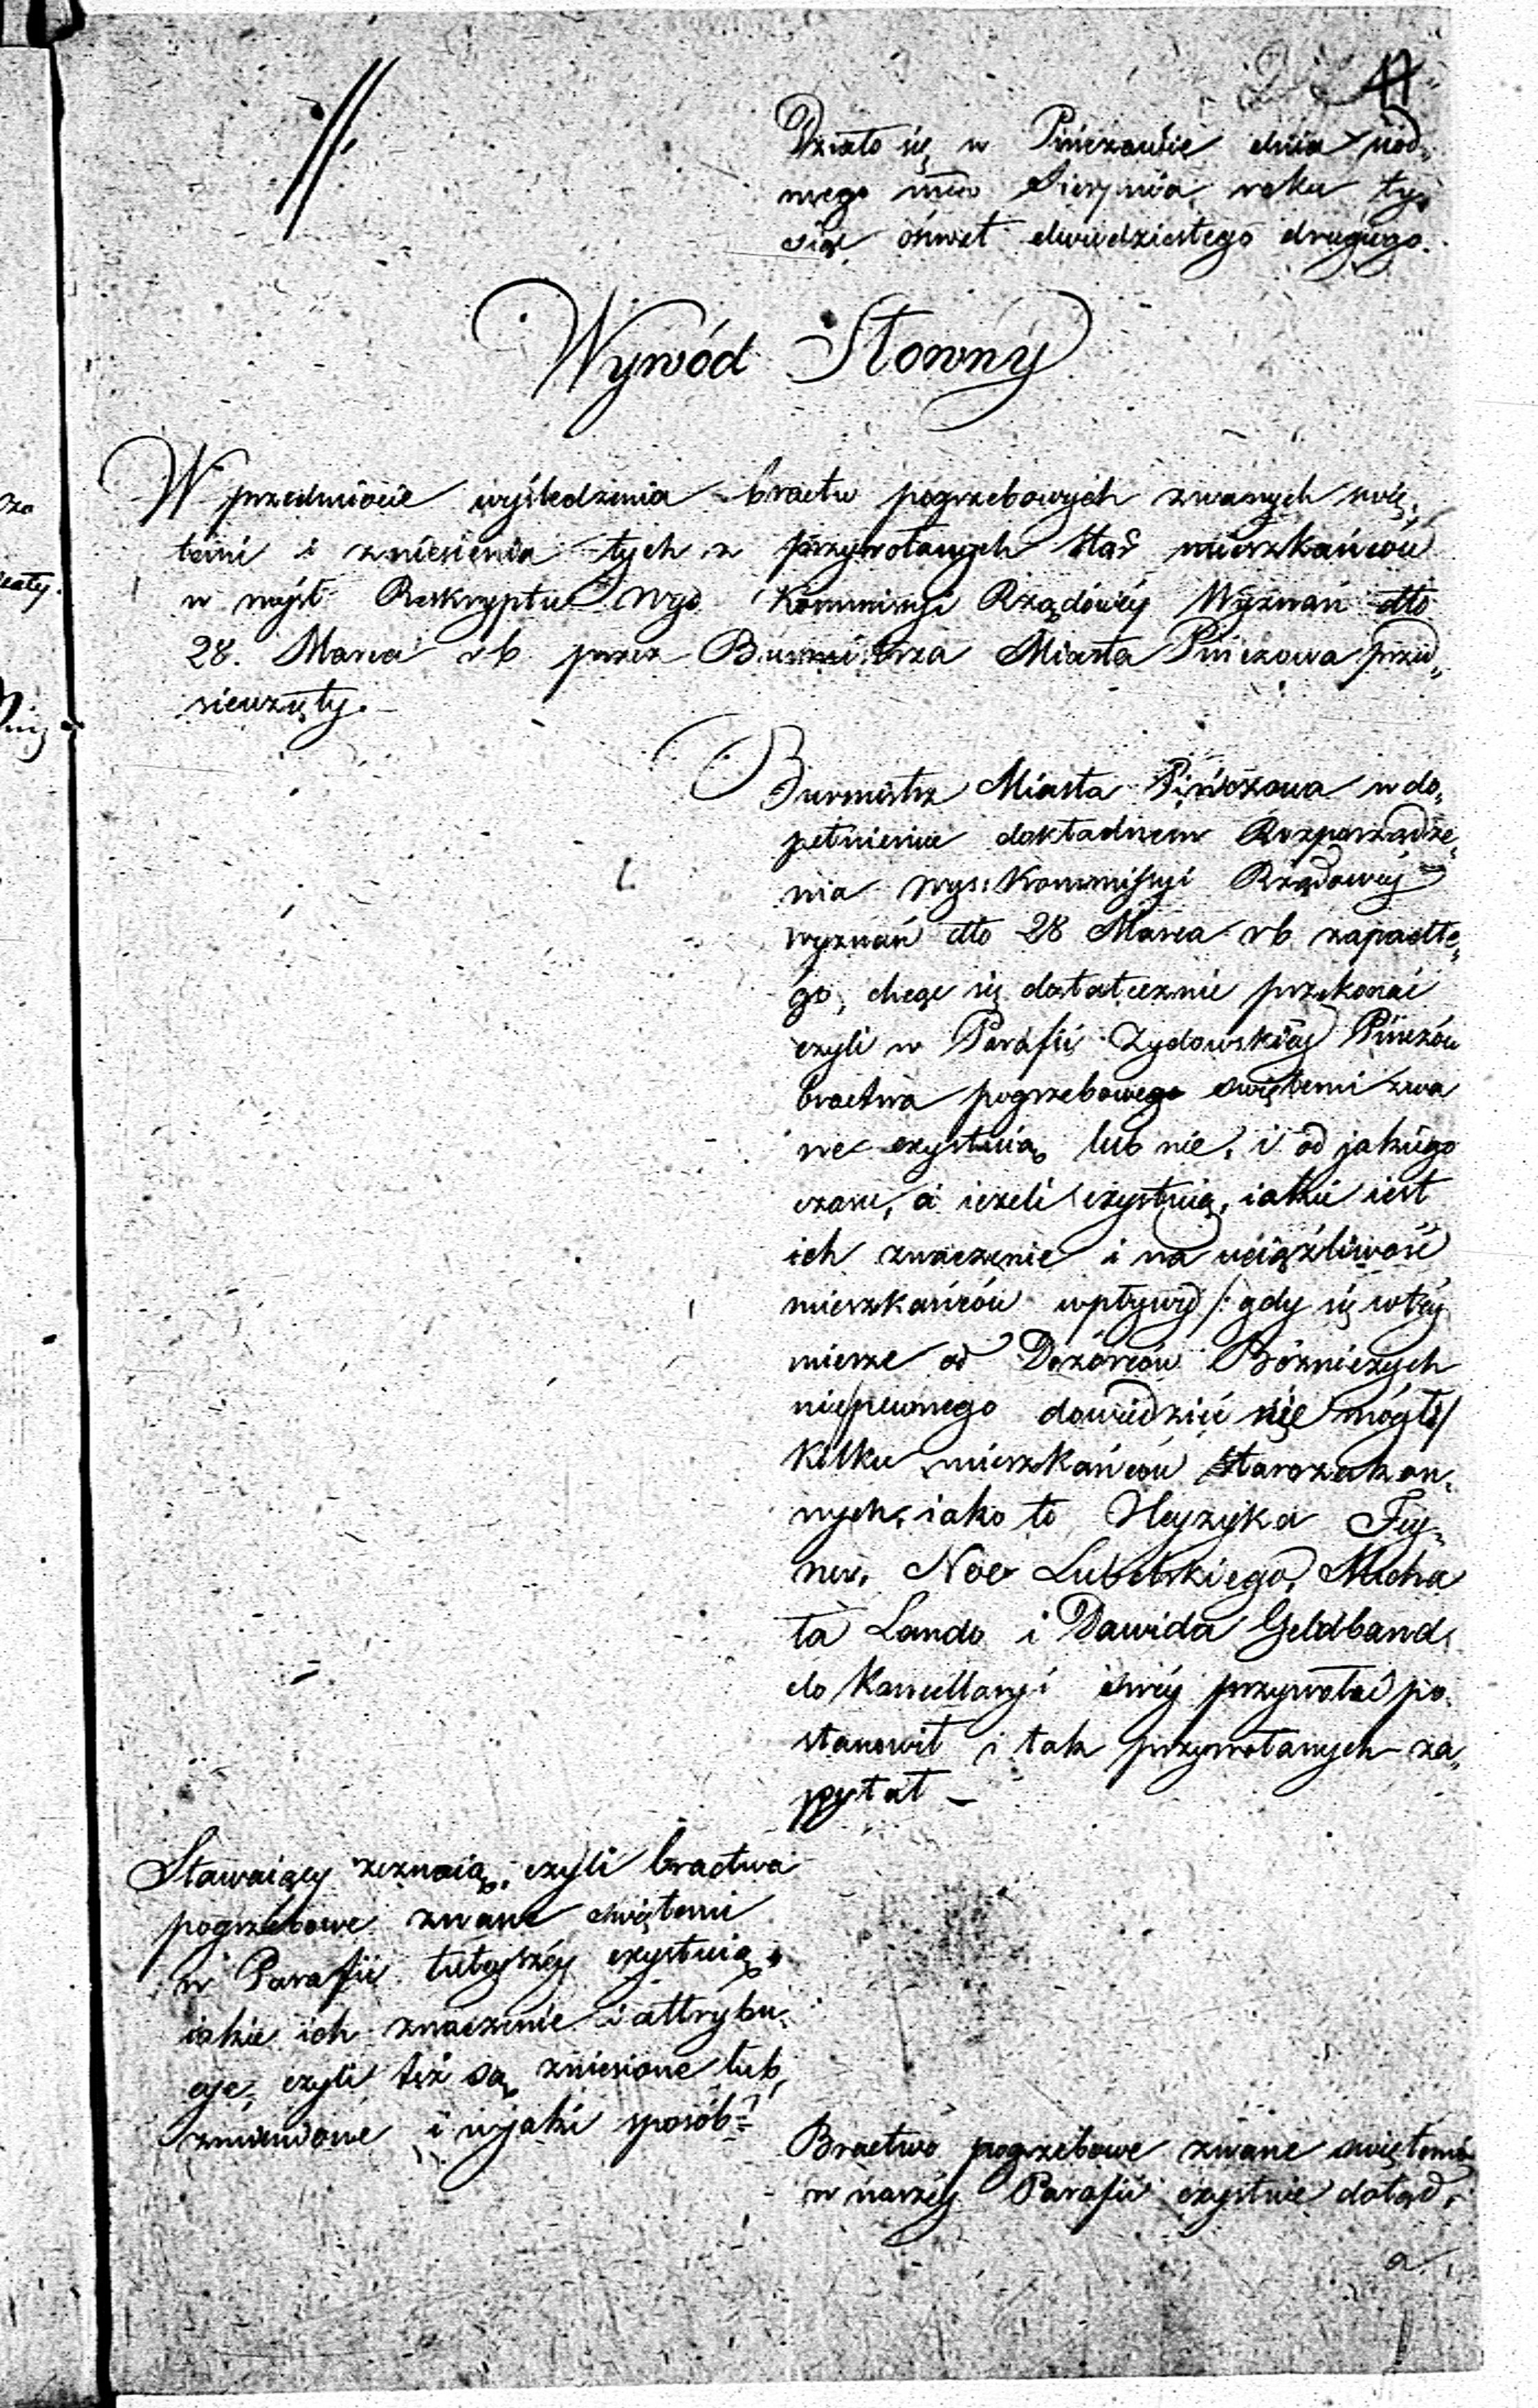 Działo się w Pińczowie dnia siód„
mego mca Sierpnia roku ty„
siąc ośmset dwudziestego drugiego.
Wywód Słowny
W przedmiocie wyśledzenia bractw pogrzebowych zwanych świę„
temi i zniesienia tych z przywołanych Star mieszkańców
w myśl Reskryptu Wyś Kommissyi Rządowéy Wyznań dto
28. Marca rb przez Burmistrza Miasta Pińczowa przed„
sięwzięty. –
Burmistrz Miasta Pińczowa w do„
pełnieniu dokładnem Rozporządze„
nia Wys: Kommissyi Rządowéy
wyznań dto 28 Marca rb zapadłe„
go, chcąc się dostatecznie przekonać
czyli w Parafii Zydowskiéy Pińczów
bractwa pogrzebowego swiętemi zwa
ne exystuią lub nie, i od jakiego
czasu, a ieżeli exystuią, iakie iest
ich znaczenie i na uciążliwość
mieszkańców wpływ /: gdy się w téy
mierze od Dozorców Bóżniczych
nic pewnego dowiedzieć nie mógł :/
kilku mieszkańców Starozakon„
nych, iako to Heyzyka Fey„
ner, Noe Lubelskiego, Micha
ła Lando i Dawida Geldband
do Kancellaryi swéy przywołać po„
stanowił i tak przywołanych za„
pytał –
Stawaiący zeznaią, czyli bractwa
pogrzebowe zwane świętemi
w Parafii tutayszéy exystuią,
iakie ich znaczenie i attrybu„
cye, czyli też są zniesione lub
zmienione i w jaki sposób?
Bractwo pogrzebowe zwane swiętemi
w naszéy Parafii exystuie dotąd,
a